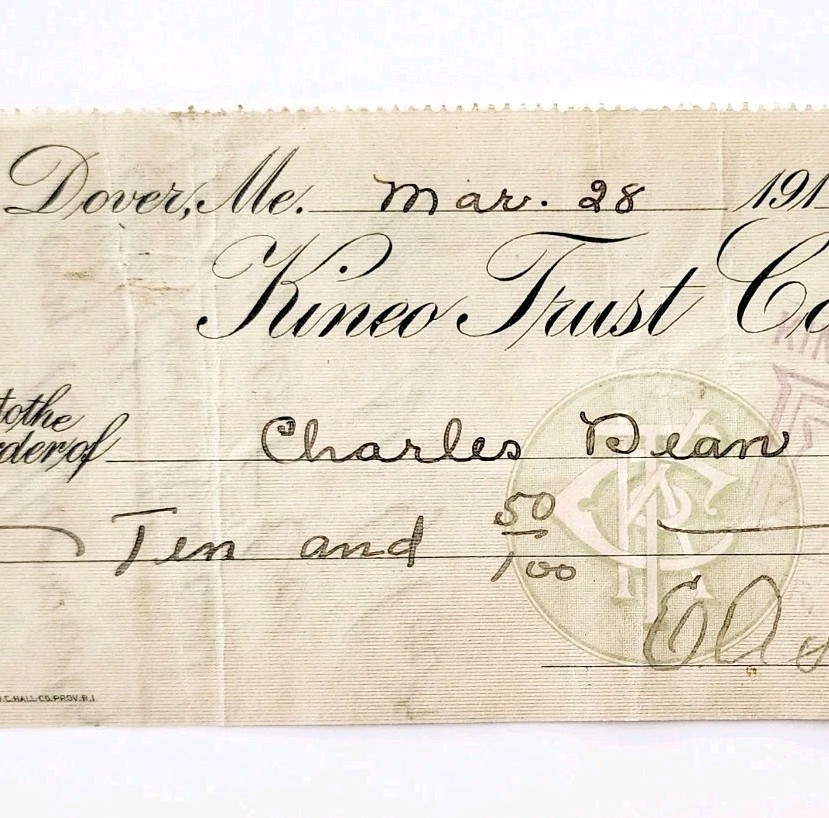 Dover, Me. Mar. 28 191
Kineo Trust Co
to the
rder of Charles Dean
Ten and 50/100
KTC
.C. HALL CO. PROV. R.I.